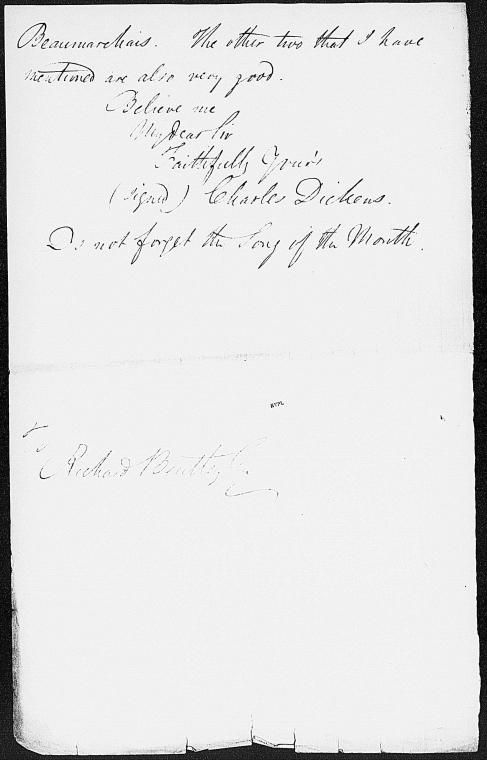 Beaumarchais. The other two that I have
mentioned are also very good.
Believe me
My dear Sir
Faithfully Your's
(signed) Charles Dickens.
Do not forget the Song of the Month.
NYPL
Richard Bentley Esq